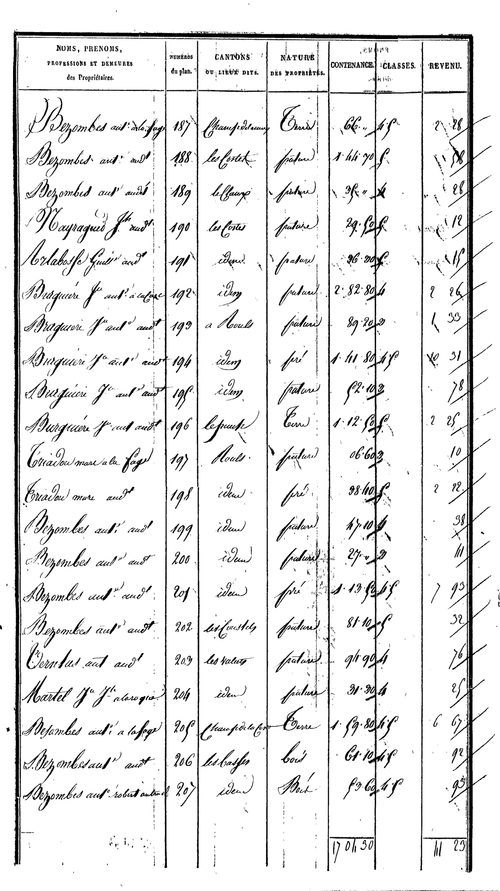 NOMS, PRENOMS,
PROFESSIONS ET DEMEURES
des Propriétaires.
NUMÉROS
du plan.
CANTONS
OU LIEUX DITS.
NATURE
DES PROPRIÉTÉS.
CONTENANCE.
CLASSES.
REVENU.
Bezombes ant. à la fage 187 Terre 66 " 4 5 2 28
Bezombes ant. audt 188 les Costes pature 1 44 70 5 58
Bezombes ant audt 189 pature 35 " 4 28
Mayragues Jh audt 190 les Costes pature 29 50 5 12
Arlabosse audt 191 idem pature 36 30 5 15
Burguiére Jn ant. 192 idem pature 2 82 80 4 2 26
Burguiére Jn ant audt 193 a Rouls pature 89 20 3 1 33
Burguiére Jn ant audt 194 idem pré 1 41 80 4 5 10 31
Burguiére Jn ant audt 195 idem pature 52 10 3 78
Burguiére Jn ant audt 196 Terre 1 12 50 5 2 25
Triadou marc a la fage 197 Rouls pature 06 60 3 10
Triadou marc audt 198 idem pré 38 40 5 2 12
Bezombes ant. audt 199 idem pature 47 10 4 38
Bezombes ant audt 200 idem pature 27 " 3 41
Bezombes ant audt 201 idem pré 1 13 50 4 5 7 93
Bezombes ant audt 202 pature 81 10 5 32
ant audt 203 pature 94 90 4 76
Martel Jn 204 idem pature 31 30 4 25
Bezombes ant. a la fage 205 Terre 1 59 80 4 5 6 67
Bezombes ant audt 206 les basses bois 61 10 4 5 92
Bezombes ant 207 idem Bois 53 60 4 5 93
17 04 30 41 23